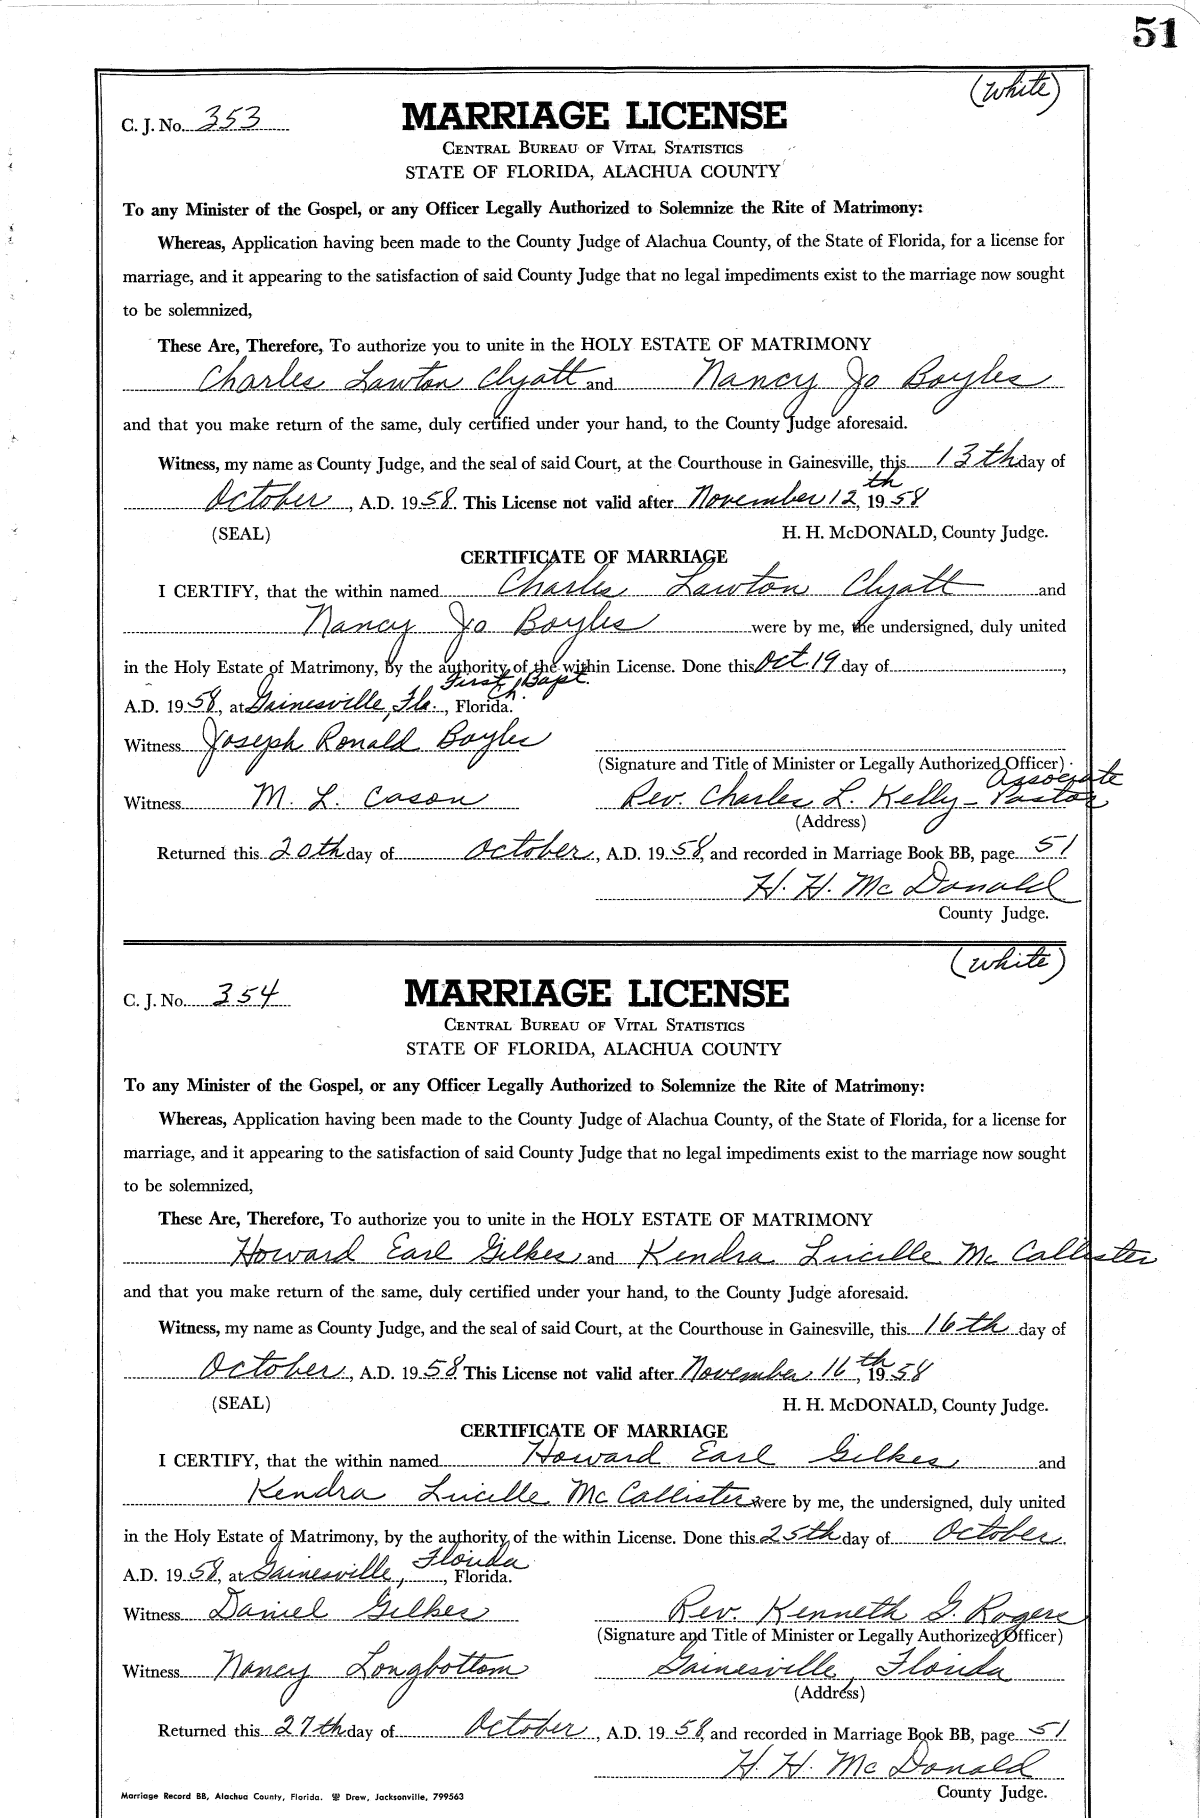 51
(White)
C. J. No. 353
MARRIAGE LICENSE
CENTRAL BUREAU OF VITAL STATISTICS
STATE OF FLORIDA, ALACHUA COUNTY
To any Minister of the Gospel, or any Officer Legally Authorized to Solemnize the Rite of Matrimony:
Whereas, Application having been made to the County Judge of Alachua County, of the State of Florida, for a license for
marriage, and it appearing to the satisfaction of said County Judge that no legal impediments exist to the marriage now sought
to be solemnized,
These Are, Therefore, To authorize you to unite in the HOLY ESTATE OF MATRIMONY
Charles Lawton Clyatt and Nancy Jo Boyles
and that you make return of the same, duly certified under your hand, to the County Judge aforesaid.
Witness, my name as County Judge, and the seal of said Court, at the Courthouse in Gainesville, this 13th day of
October, A.D. 1958. This License not valid after November 12th, 1958
(SEAL) H. H. McDONALD, County Judge.
CERTIFICATE OF MARRIAGE
I CERTIFY, that the within named Charles Lawton Clyatt and
Nancy Jo Boyles were by me, the undersigned, duly united
in the Holy Estate of Matrimony, by the authority of the within License. Done this Oct. 19 day of ,
First Bapt. Ch.
A.D. 1958, at Gainesville, Fla., Florida.
Witness Joseph Ronald Boyles
(Signature and Title of Minister or Legally Authorized Officer)
Associate
Witness M. L. Cason Rev. Charles L. Kelly - Pastor
(Address)
Returned this 20th day of October, A.D. 1958, and recorded in Marriage Book BB, page 51
H. H. McDonald
County Judge.
(White)
C. J. No. 354
MARRIAGE LICENSE
CENTRAL BUREAU OF VITAL STATISTICS
STATE OF FLORIDA, ALACHUA COUNTY
To any Minister of the Gospel, or any Officer Legally Authorized to Solemnize the Rite of Matrimony:
Whereas, Application having been made to the County Judge of Alachua County, of the State of Florida, for a license for
marriage, and it appearing to the satisfaction of said County Judge that no legal impediments exist to the marriage now sought
to be solemnized,
These Are, Therefore, To authorize you to unite in the HOLY ESTATE OF MATRIMONY
Howard Earl Gilkes and Kendra Lucille McCallister
and that you make return of the same, duly certified under your hand, to the County Judge aforesaid.
Witness, my name as County Judge, and the seal of said Court, at the Courthouse in Gainesville, this 16th day of
October, A.D. 1958. This License not valid after November 16th, 1958
(SEAL) H. H. McDONALD, County Judge.
CERTIFICATE OF MARRIAGE
I CERTIFY, that the within named Howard Earl Gilkes and
Kendra Lucille McCallister were by me, the undersigned, duly united
in the Holy Estate of Matrimony, by the authority of the within License. Done this 25th day of October.
A.D. 1958, at Gainesville, Florida, Florida.
Witness Daniel Gilkes Rev. Kenneth G. Rogers
(Signature and Title of Minister or Legally Authorized Officer)
Witness Nancy Longbottom Gainesville, Florida
(Address)
Returned this 27th day of October, A.D. 1958, and recorded in Marriage Book BB, page 51
H. H. McDonald
Marriage Record BB, Alachua County, Florida. Drew, Jacksonville, 799563 County Judge.